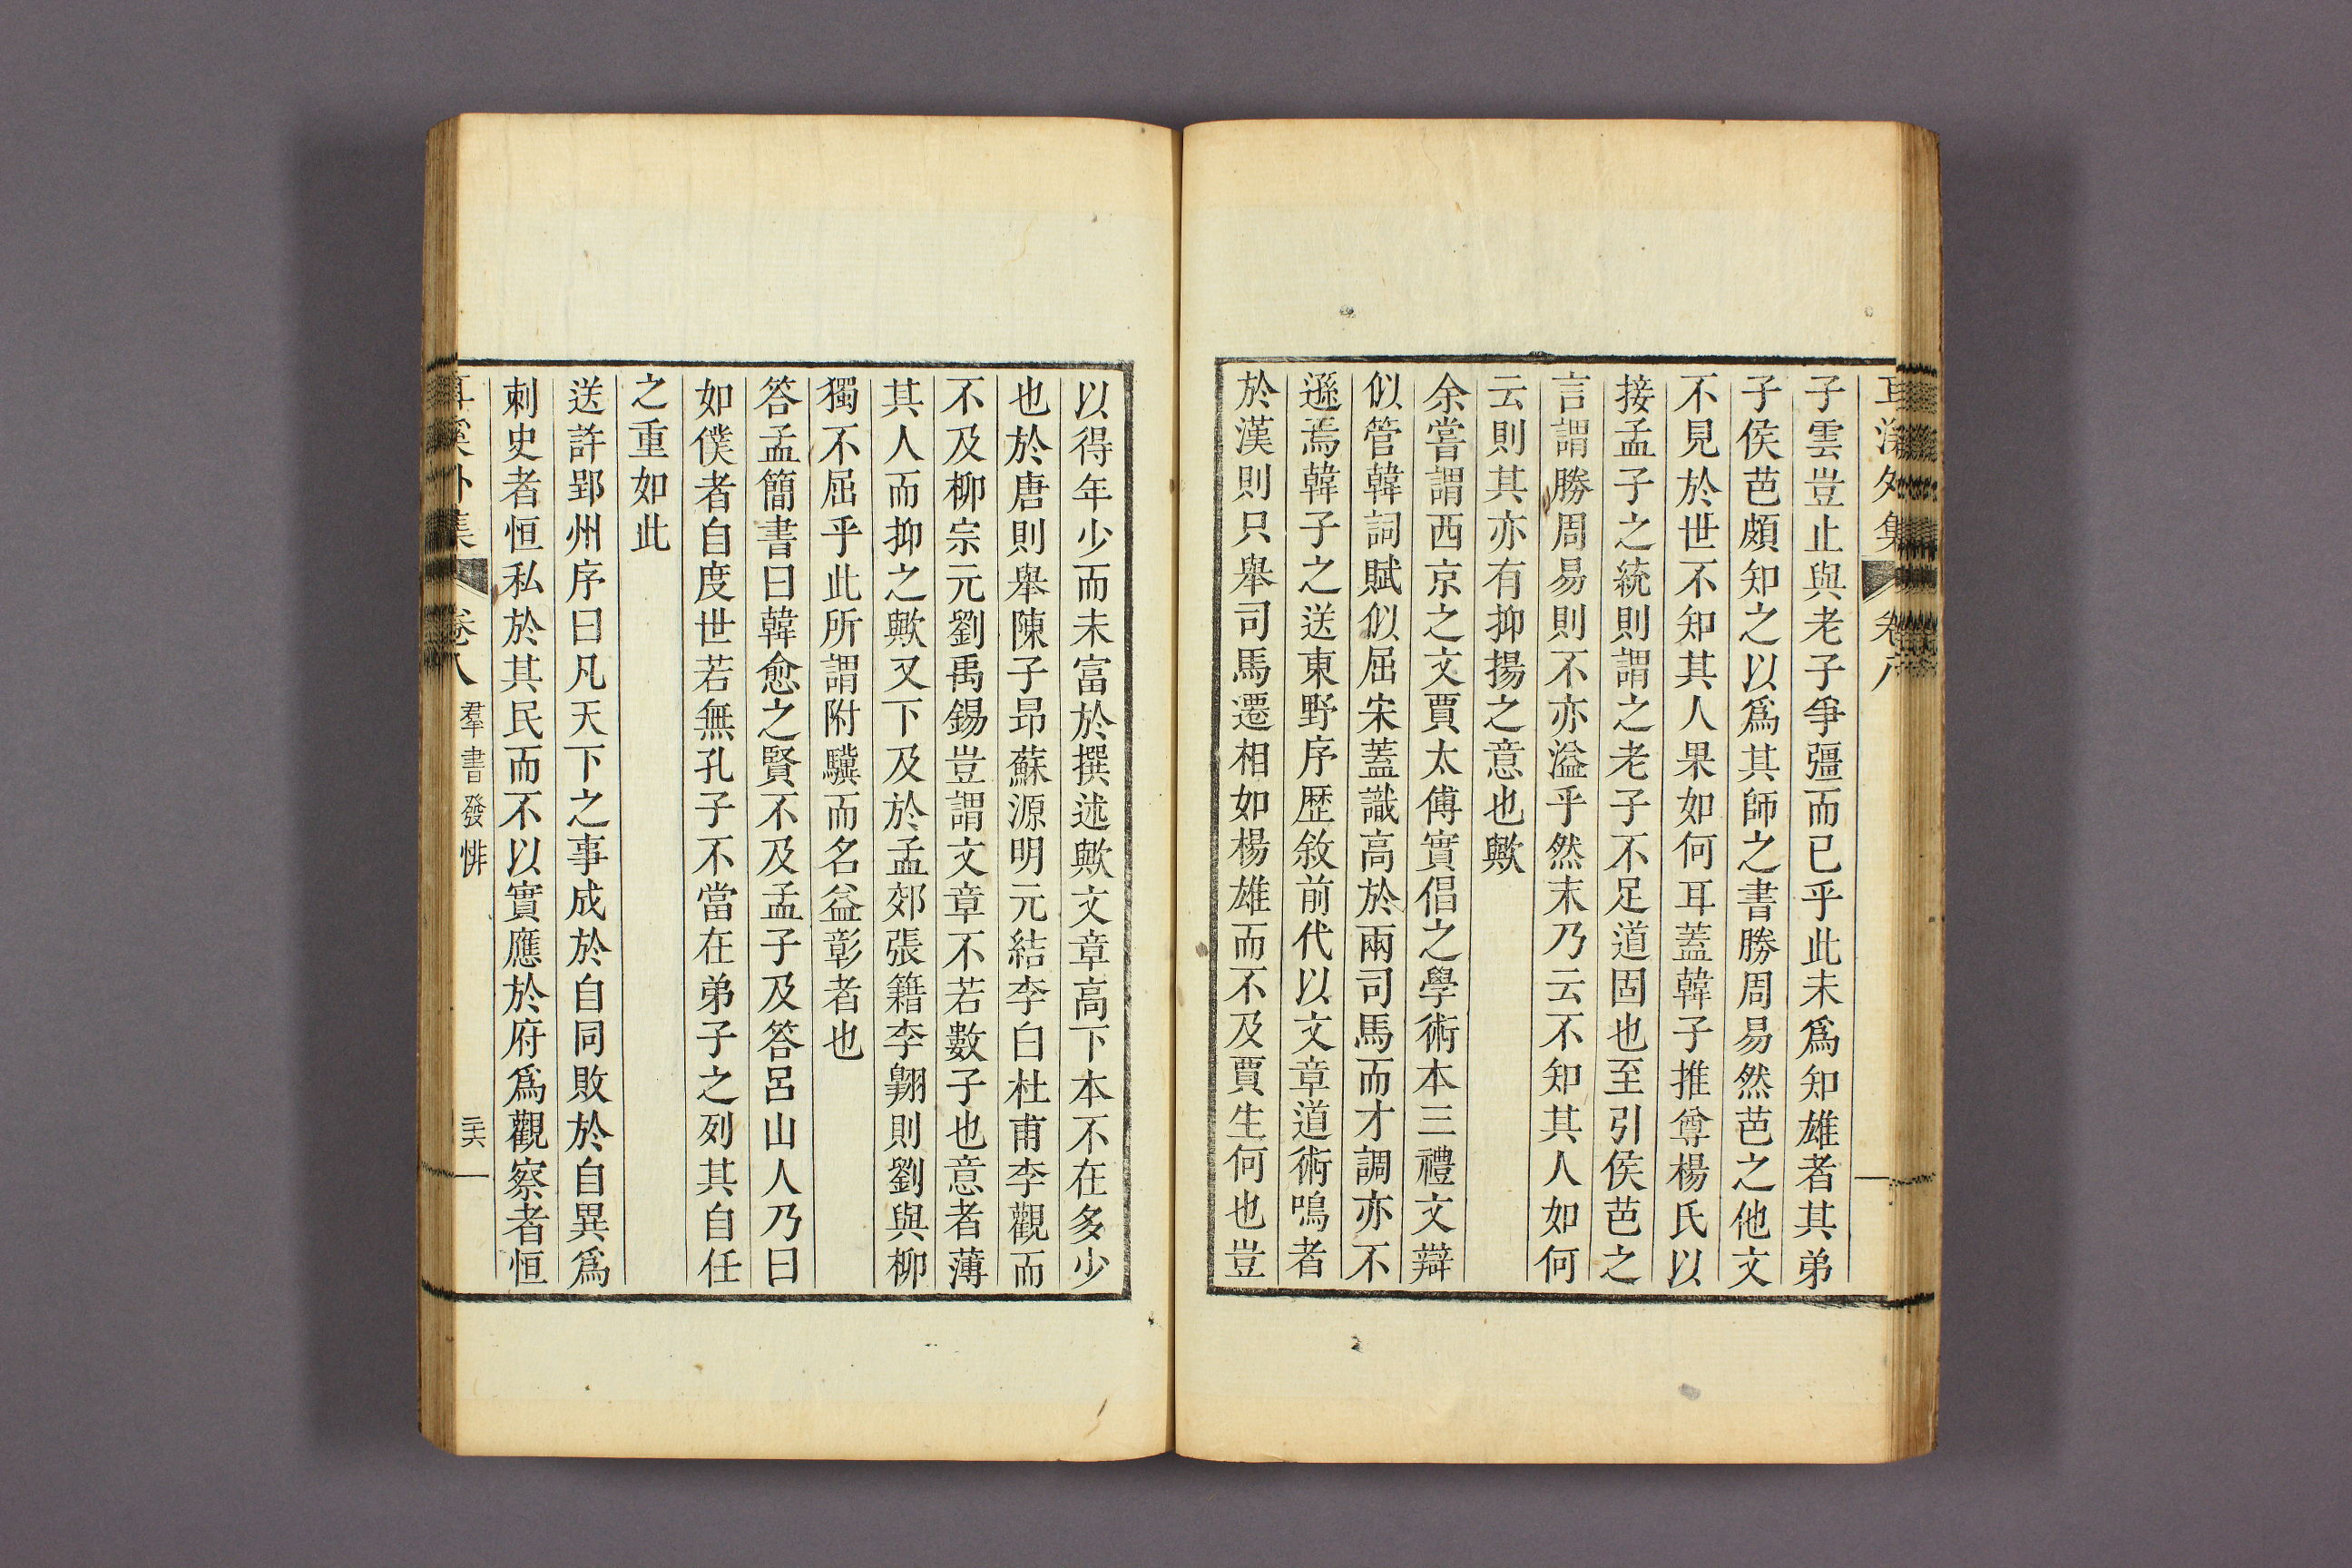 外集
卷八
子雲豈止與老子爭彊而已乎此未爲知雄者其弟
子侯芭頗知之以爲其師之書勝周易然芭之他文
不見於世不知其人果如何耳蓋韓子推尊楊氏以
接孟子之統則謂之老子不足道固也至引侯芭之
言謂勝周易則不亦溢乎然末乃云不知其人如何
云則其亦有抑揚之意也歟
余嘗謂西京之文賈太傅實倡之學術本三禮文辯
似管韓詞賦似屈宋蓋識高於兩司馬而才調亦不
遜焉韓子之送東野序歷敘前代以文章道術鳴者
於漢則只舉司馬遷相如楊雄而不及賈生何也豈
以得年少而未富於撰述歟文章高下本不在多少
也於唐則舉陳子昻蘇源明元結李白杜甫李觀而
不及柳宗元劉禹錫豈謂文章不若數子也意者薄
其人而抑之歟又下及於孟郊張籍李翺則劉與柳
獨不屈乎此所謂附驥而名益彰者也
答孟簡書曰韓愈之賢不及孟子及答呂山人乃曰
如僕者自度世若無孔子不當在弟子之列其自任
之重如此
送許郢州序曰凡天下之事成於自同敗於自異爲
刺史者恒私於其民而不以實應於府爲觀察者恒
外集
卷八
羣書發悱
二十六